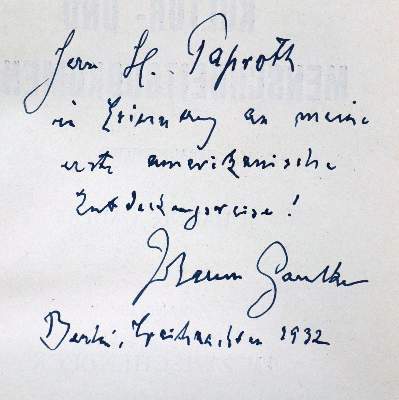 Herrn H. Paproth
in Erinnerung an meine
erste amerikanische
Entdeckungsreise!
Johann Gaulke
Berlin, Weihnachten 1932